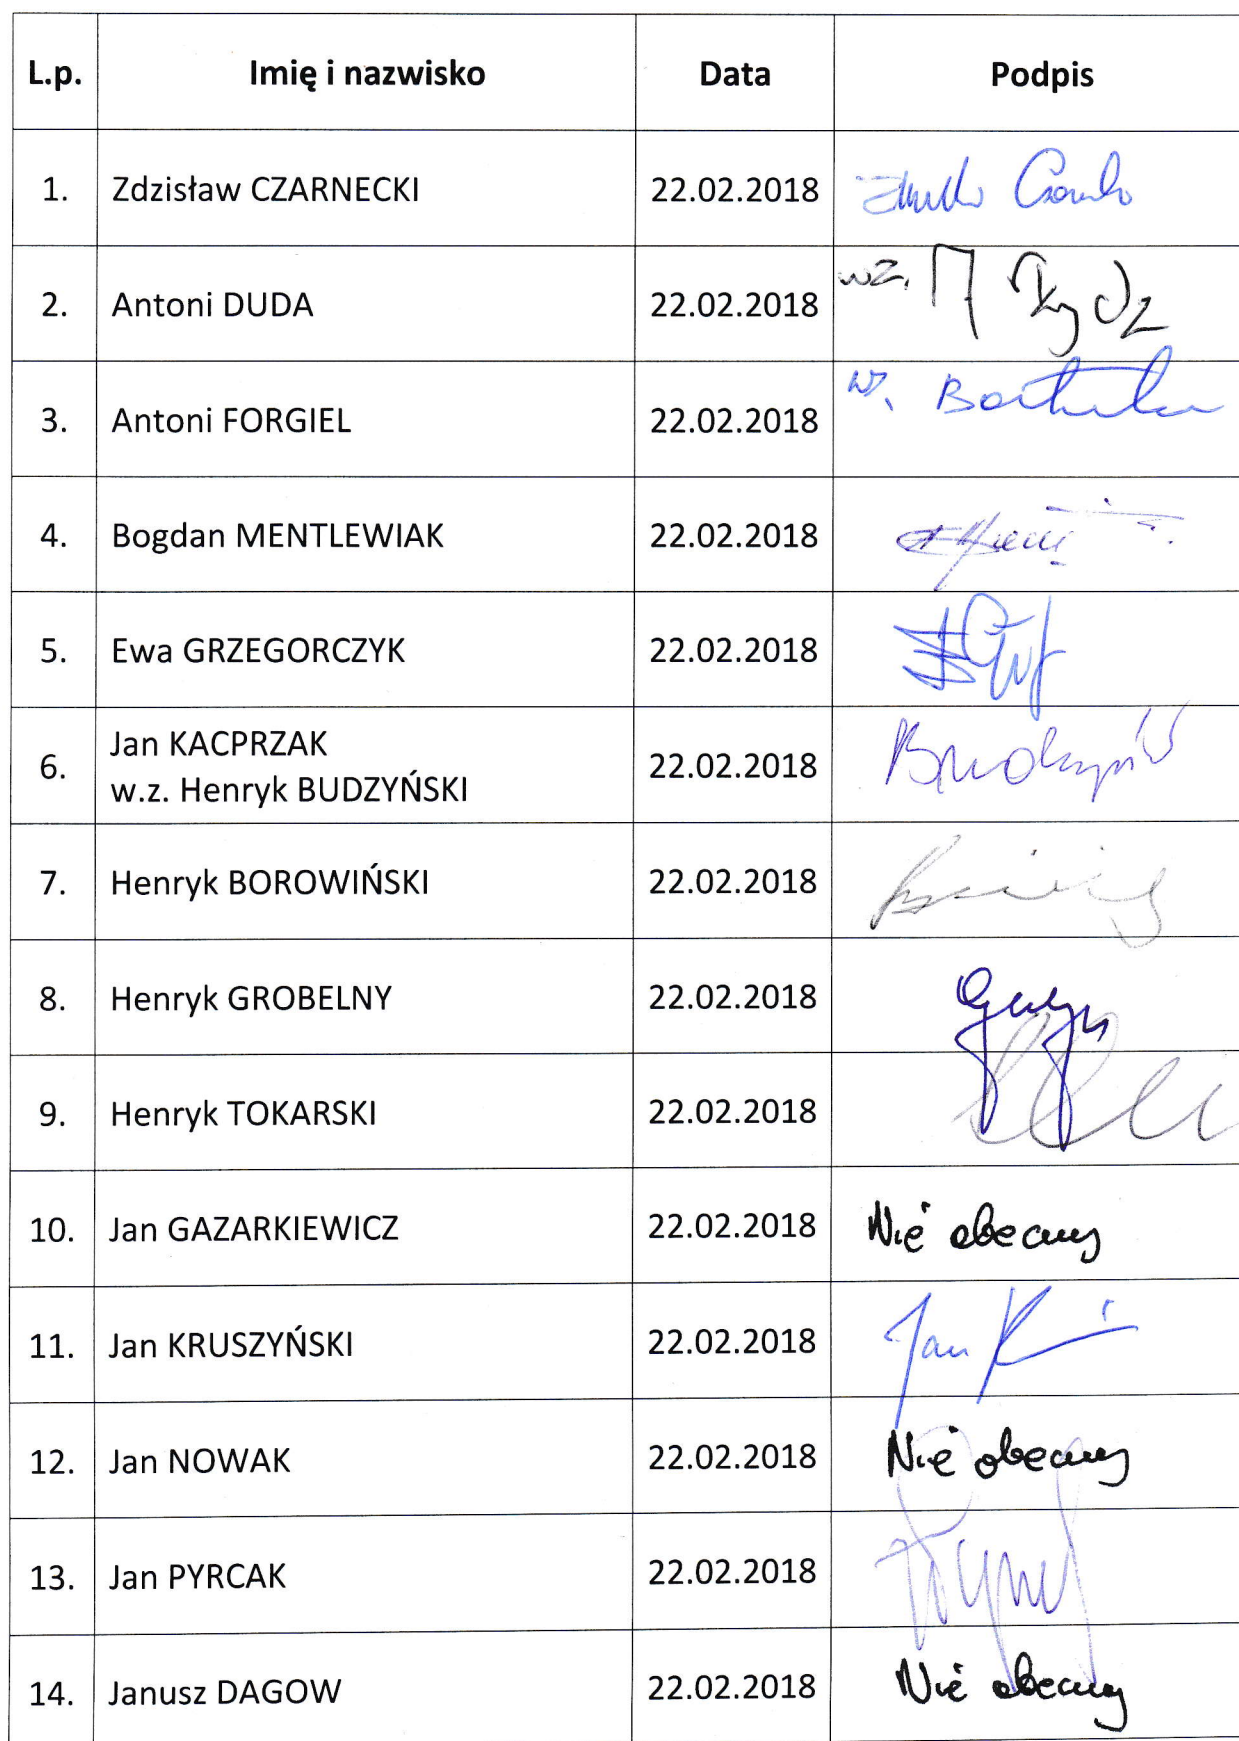 L.p. Imię i nazwisko Data Podpis
1. Zdzisław CZARNECKI 22.02.2018
2. Antoni DUDA 22.02.2018 wz.
3. Antoni FORGIEL 22.02.2018
4. Bogdan MENTLEWIAK 22.02.2018
5. Ewa GRZEGORCZYK 22.02.2018
6. Jan KACPRZAK
w.z. Henryk BUDZYŃSKI 22.02.2018
7. Henryk BOROWIŃSKI 22.02.2018
8. Henryk GROBELNY 22.02.2018
9. Henryk TOKARSKI 22.02.2018
10. Jan GAZARKIEWICZ 22.02.2018 Nie obecny
11. Jan KRUSZYŃSKI 22.02.2018 Jan
12. Jan NOWAK 22.02.2018 Nie obecny
13. Jan PYRCAK 22.02.2018
14. Janusz DAGOW 22.02.2018 Nie obecny